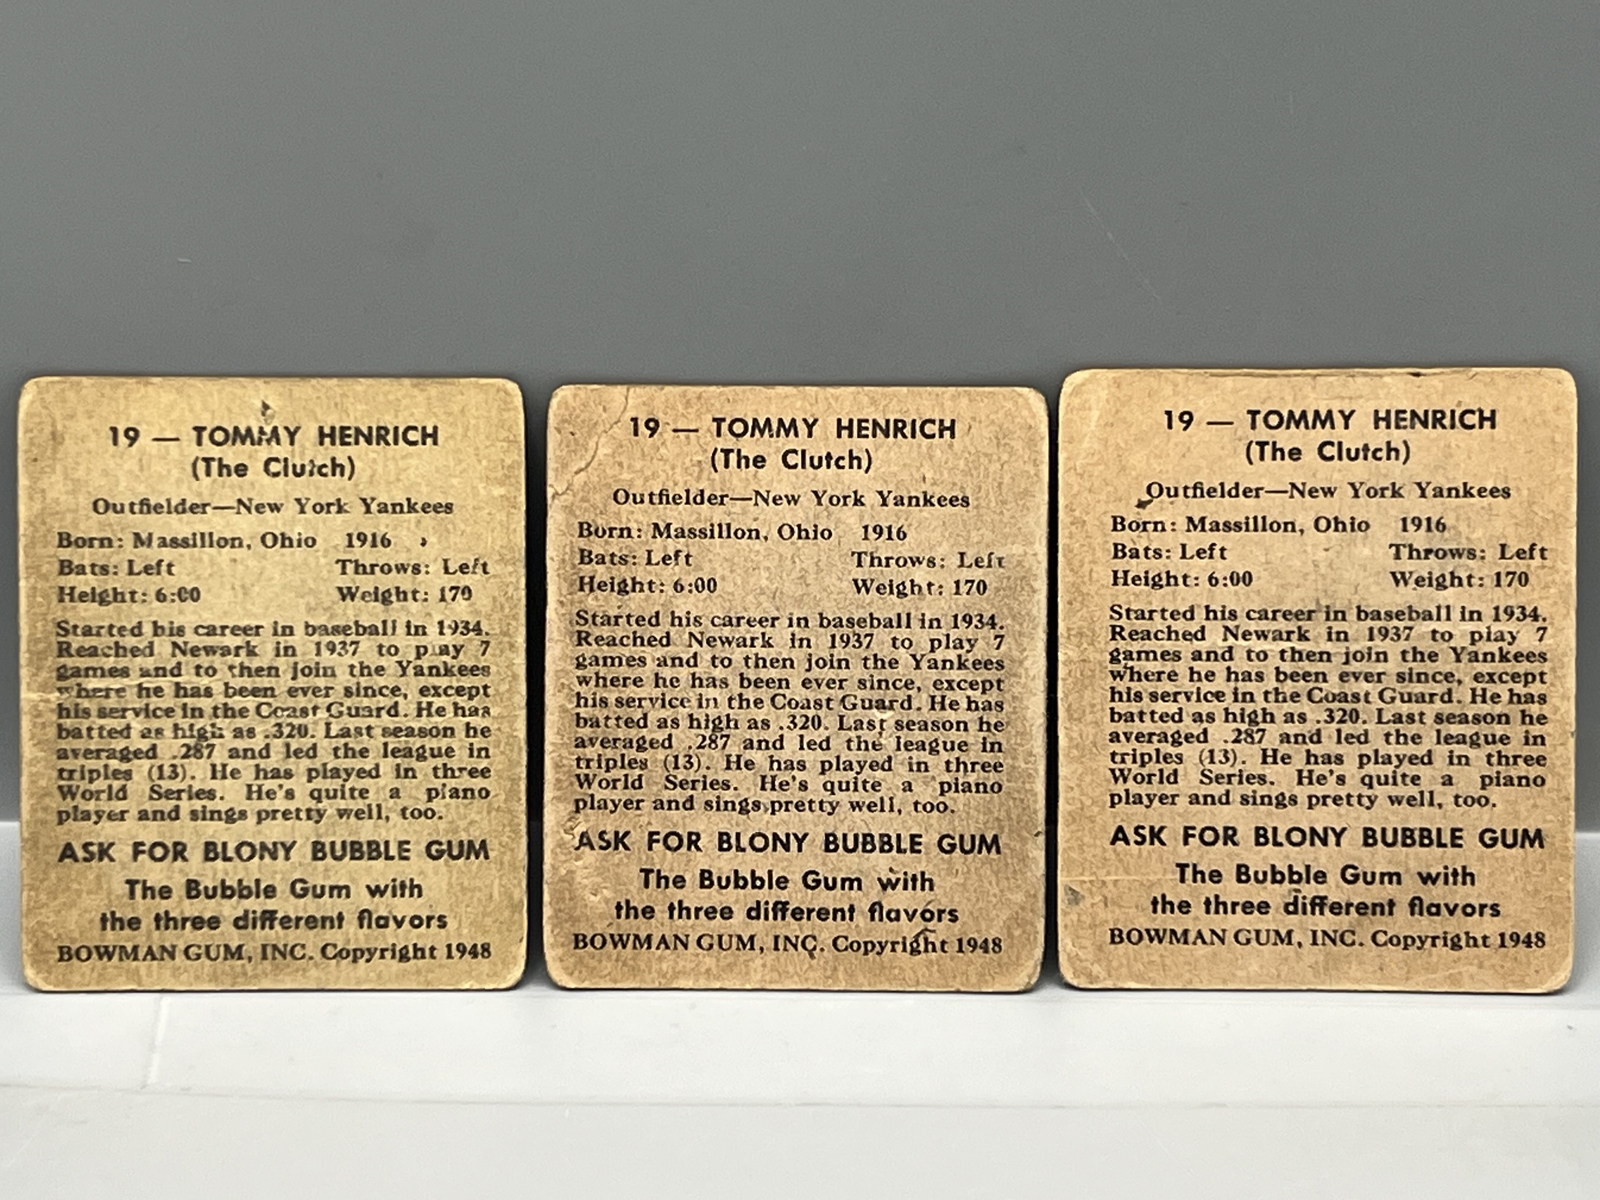 19 — TOMMY HENRICH
(The Clutch)
Outfielder—New York Yankees
Born: Massillon, Ohio 1916
Bats: Left Throws: Left
Height: 6:00 Weight: 170
Started his career in baseball in 1934.
Reached Newark in 1937 to play 7
games and to then join the Yankees
where he has been ever since, except
his service in the Coast Guard. He has
batted as high as .320. Last season he
averaged .287 and led the league in
triples (13). He has played in three
World Series. He's quite a piano
player and sings pretty well, too.
ASK FOR BLONY BUBBLE GUM
The Bubble Gum with
the three different flavors
BOWMAN GUM, INC. Copyright 1948
19 — TOMMY HENRICH
(The Clutch)
Outfielder—New York Yankees
Born: Massillon, Ohio 1916
Bats: Left Throws: Left
Height: 6:00 Weight: 170
Started his career in baseball in 1934.
Reached Newark in 1937 to play 7
games and to then join the Yankees
where he has been ever since, except
his service in the Coast Guard. He has
batted as high as .320. Last season he
averaged .287 and led the league in
triples (13). He has played in three
World Series. He's quite a piano
player and sings pretty well, too.
ASK FOR BLONY BUBBLE GUM
The Bubble Gum with
the three different flavors
BOWMAN GUM, INC. Copyright 1948
19 — TOMMY HENRICH
(The Clutch)
Outfielder—New York Yankees
Born: Massillon, Ohio 1916
Bats: Left Throws: Left
Height: 6:00 Weight: 170
Started his career in baseball in 1934.
Reached Newark in 1937 to play 7
games and to then join the Yankees
where he has been ever since, except
his service in the Coast Guard. He has
batted as high as .320. Last season he
averaged .287 and led the league in
triples (13). He has played in three
World Series. He's quite a piano
player and sings pretty well, too.
ASK FOR BLONY BUBBLE GUM
The Bubble Gum with
the three different flavors
BOWMAN GUM, INC. Copyright 1948